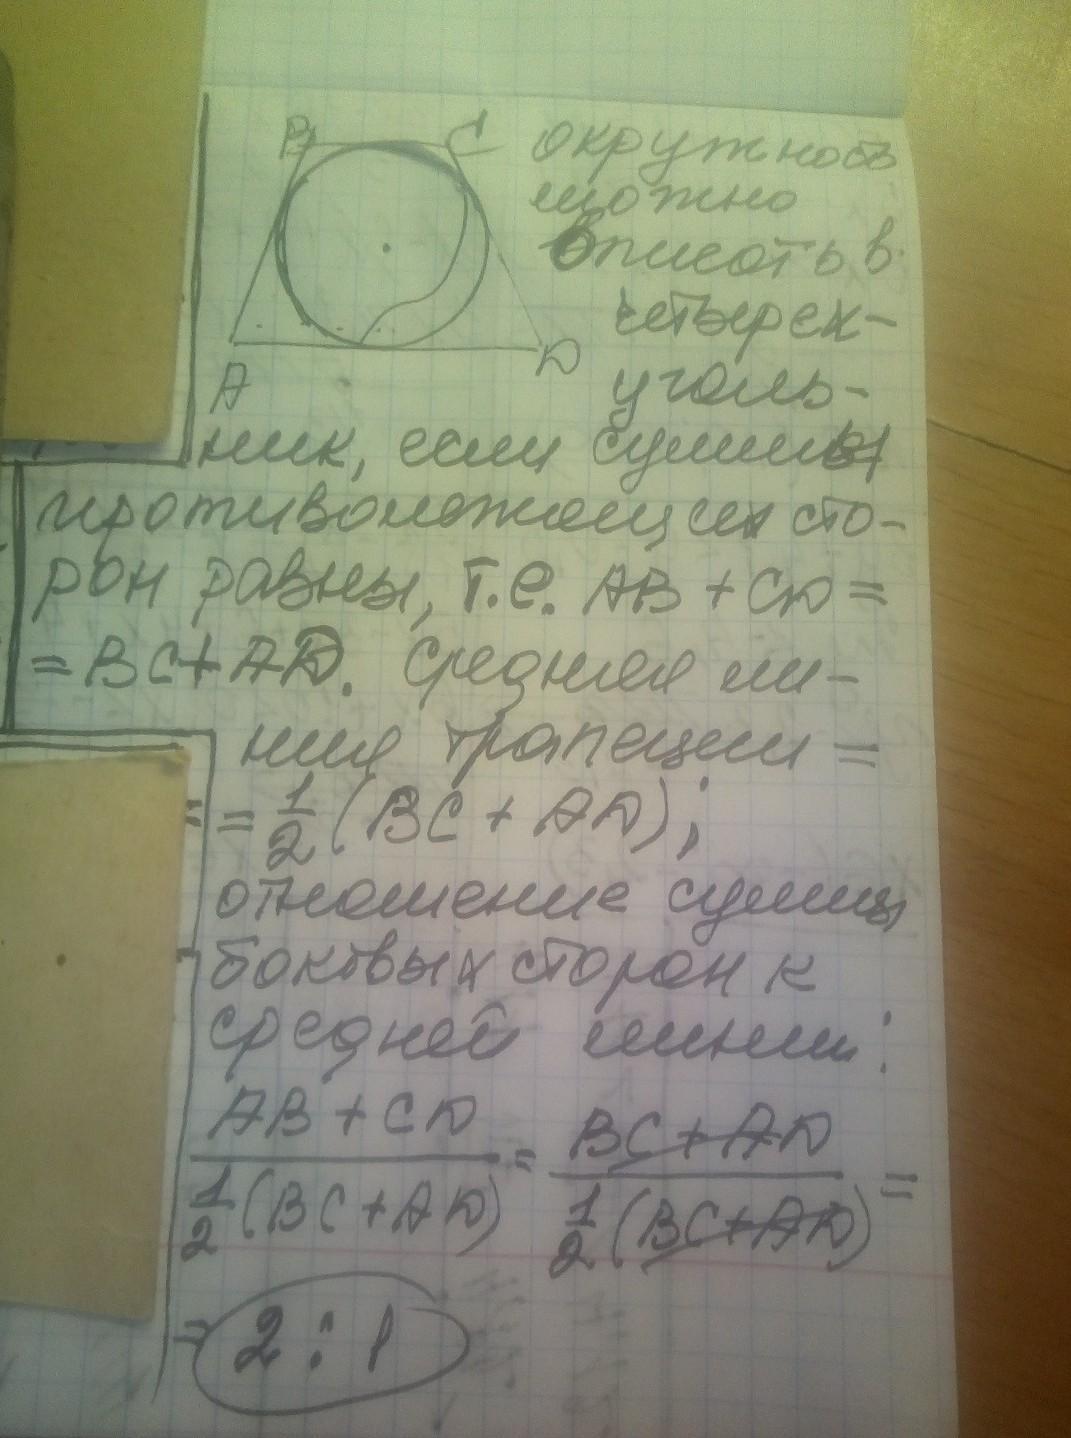 B C окружность
можно
вписать в
четырех-
A D уголь-
ник, если суммы
противолежащих сто-
рон равны, т.е. AB + CD =
= BC + AD. Средняя ли-
ния трапеции =
= = 1/2 (BC + AD);
отношение суммы
боковых сторон к
средней линии:
AB + CD / 1/2 (BC + AD) = BC + AD / 1/2 (BC + AD) =
= 2 : 1